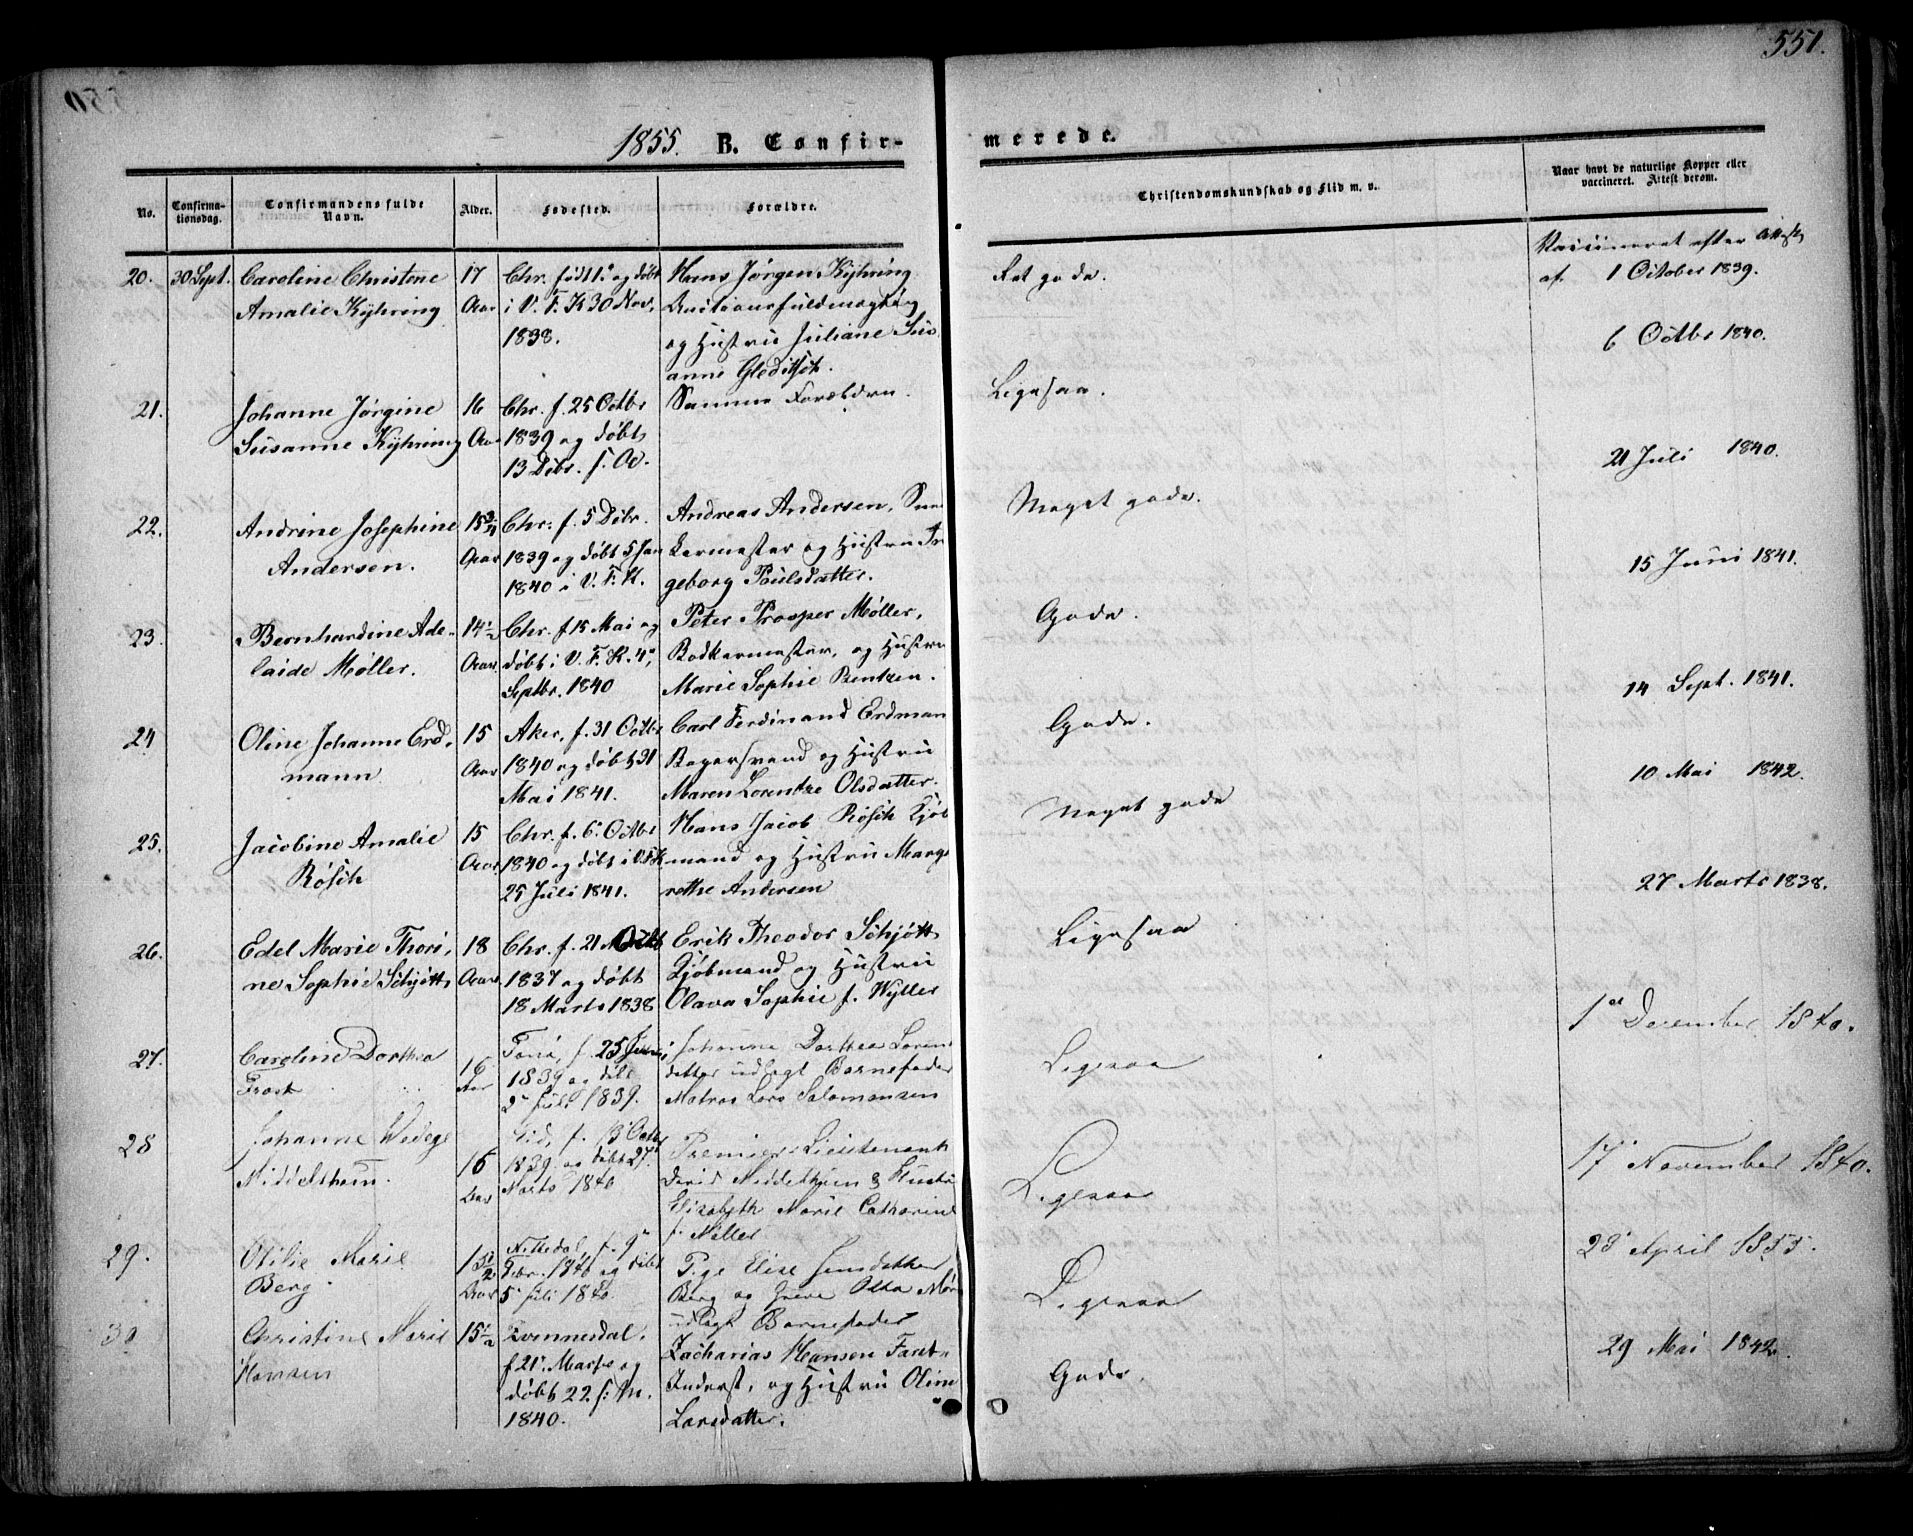 551.
1855. B. Confir-
merede.
No.
Confirma-
tionsdag.
Confirmandens fulde
Navn.
Alder.
Fødested.
Forældre.
Christendomskundskab og Flid m. v.
Naar havt de naturlige Kopper eller
vaccineret. Attest derom.
20.
30 Sept.
Caroline Christine
Amalie Kyhring
17
Aar
Chr. født 1' og døbt
i V. F. K 30 Nov.
1838.
Hans Jørgen Kyhring
Auctionsfuldmægtig
og Hustru Juliane Sus
anne Gleditsch.
Ret gode.
Vaccineret efter Attest
af 1 October 1839.
21.
Johanne Jørgine
Susanne Kyhring
16
Aar
Chr. f. 25 Octbr
1839 og døbt
13 Debr. s. A.
Samme Forældre.
Ligesaa.
6 Octbr 1840.
22.
Andrine Josephine
Andersen.
15 3/4
Aar
Chr. f. 5 Debr.
1839 og døbt 5 Jan
1840 i V. F. K.
Andreas Andersen, Snee
kermester og Hustru In
geborg Poulsdatter.
Meget gode.
21 Juli 1840.
23
Bernhardine Ade-
laide Møller.
14 1/2
Aar
Chr. f 15 Mai og
døbt i V. F. K. 4
Septbr. 1840
Peter Prosper Møller,
Bødkermester, og Hustru
Marie Sophie Bentzen.
Gode.
15 Juni 1841.
24
Oline Johanne Erd-
mann
15
Aar
Aker, f. 31 Octbr
1840 og døbt 31
Mai 1841.
Carl Ferdinand Erdman
Bagersvend og Hustru
Maren Lorentze Olsdatter.
Gode.
14 Sept. 1841.
25.
Jacobine Amalie
Rösch
15
Aar
Chr. f. 6 Octbr
1840 og døbt i V. F. K
25 Juli 1841.
Hans Jacob Rösch Kjøb
mand og Hustru Marga
rethe Andersen
Meget gode
10 Mai 1842.
26.
Edel Marie Thori-
ne Sophie Schjøtt
18
Aar
Chr. f. 21 Octb
1837 og døbt
18 Marts 1838
Erik Theodor Schjøtt
Kjøbmand og Hustru
Olava Sophie f. Wyller
Ligesaa
27 Marts 1838.
27.
Caroline Dorthea
Frost
16
Aar
f. 25
1839 og døbt
2 Juli 1839.
Johanne Dorthea Loren
datter udlagt Barnefader
Matros Lars Salomonsen
Ligesaa
1st December 1840.
28
Johanne Wedege
Middelthun.
16
Aar
f. 13 Octbr
1839 og døbt 27
Marts 1840
Premier-Lieutenant
David Middelthun & Hustru
Elisabeth Marie Catharine
f. Møller
Ligesaa
17 November 1840.
29.
Otilie Marie
Berg
15 1/2
Aar
Nittedal, f. 9
Febr. 1840 og døbt
5 Juli 1840.
Pige Elise Jensdatter
Berg og Greve Otto Mør
udlagt Barnefader
Ligesaa
23 April 1855.
30
Christine Marie
Hansen
15 1/2
f 21 Marts og
døbt 22 s. M.
1840.
Zacharias Hansen
og Hustru Oline
Larsdatter.
Gode.
29 Mai 1842.